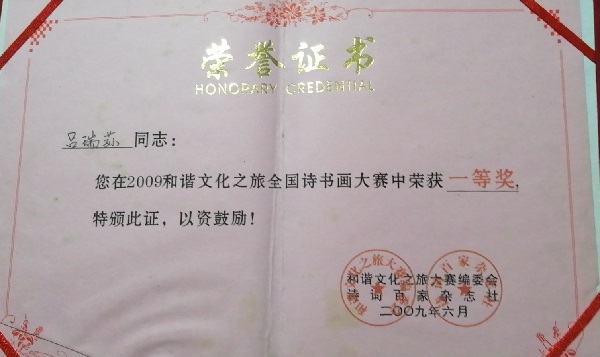 荣誉证书
HONORARY CREDENTIAL
吕瑞荪 同志：
您在2009和谐文化之旅全国诗书画大赛中荣获 一等奖，
特颁此证，以资鼓励！
和谐文化之旅大赛编委会
诗词百家杂志社
二〇〇九年六月